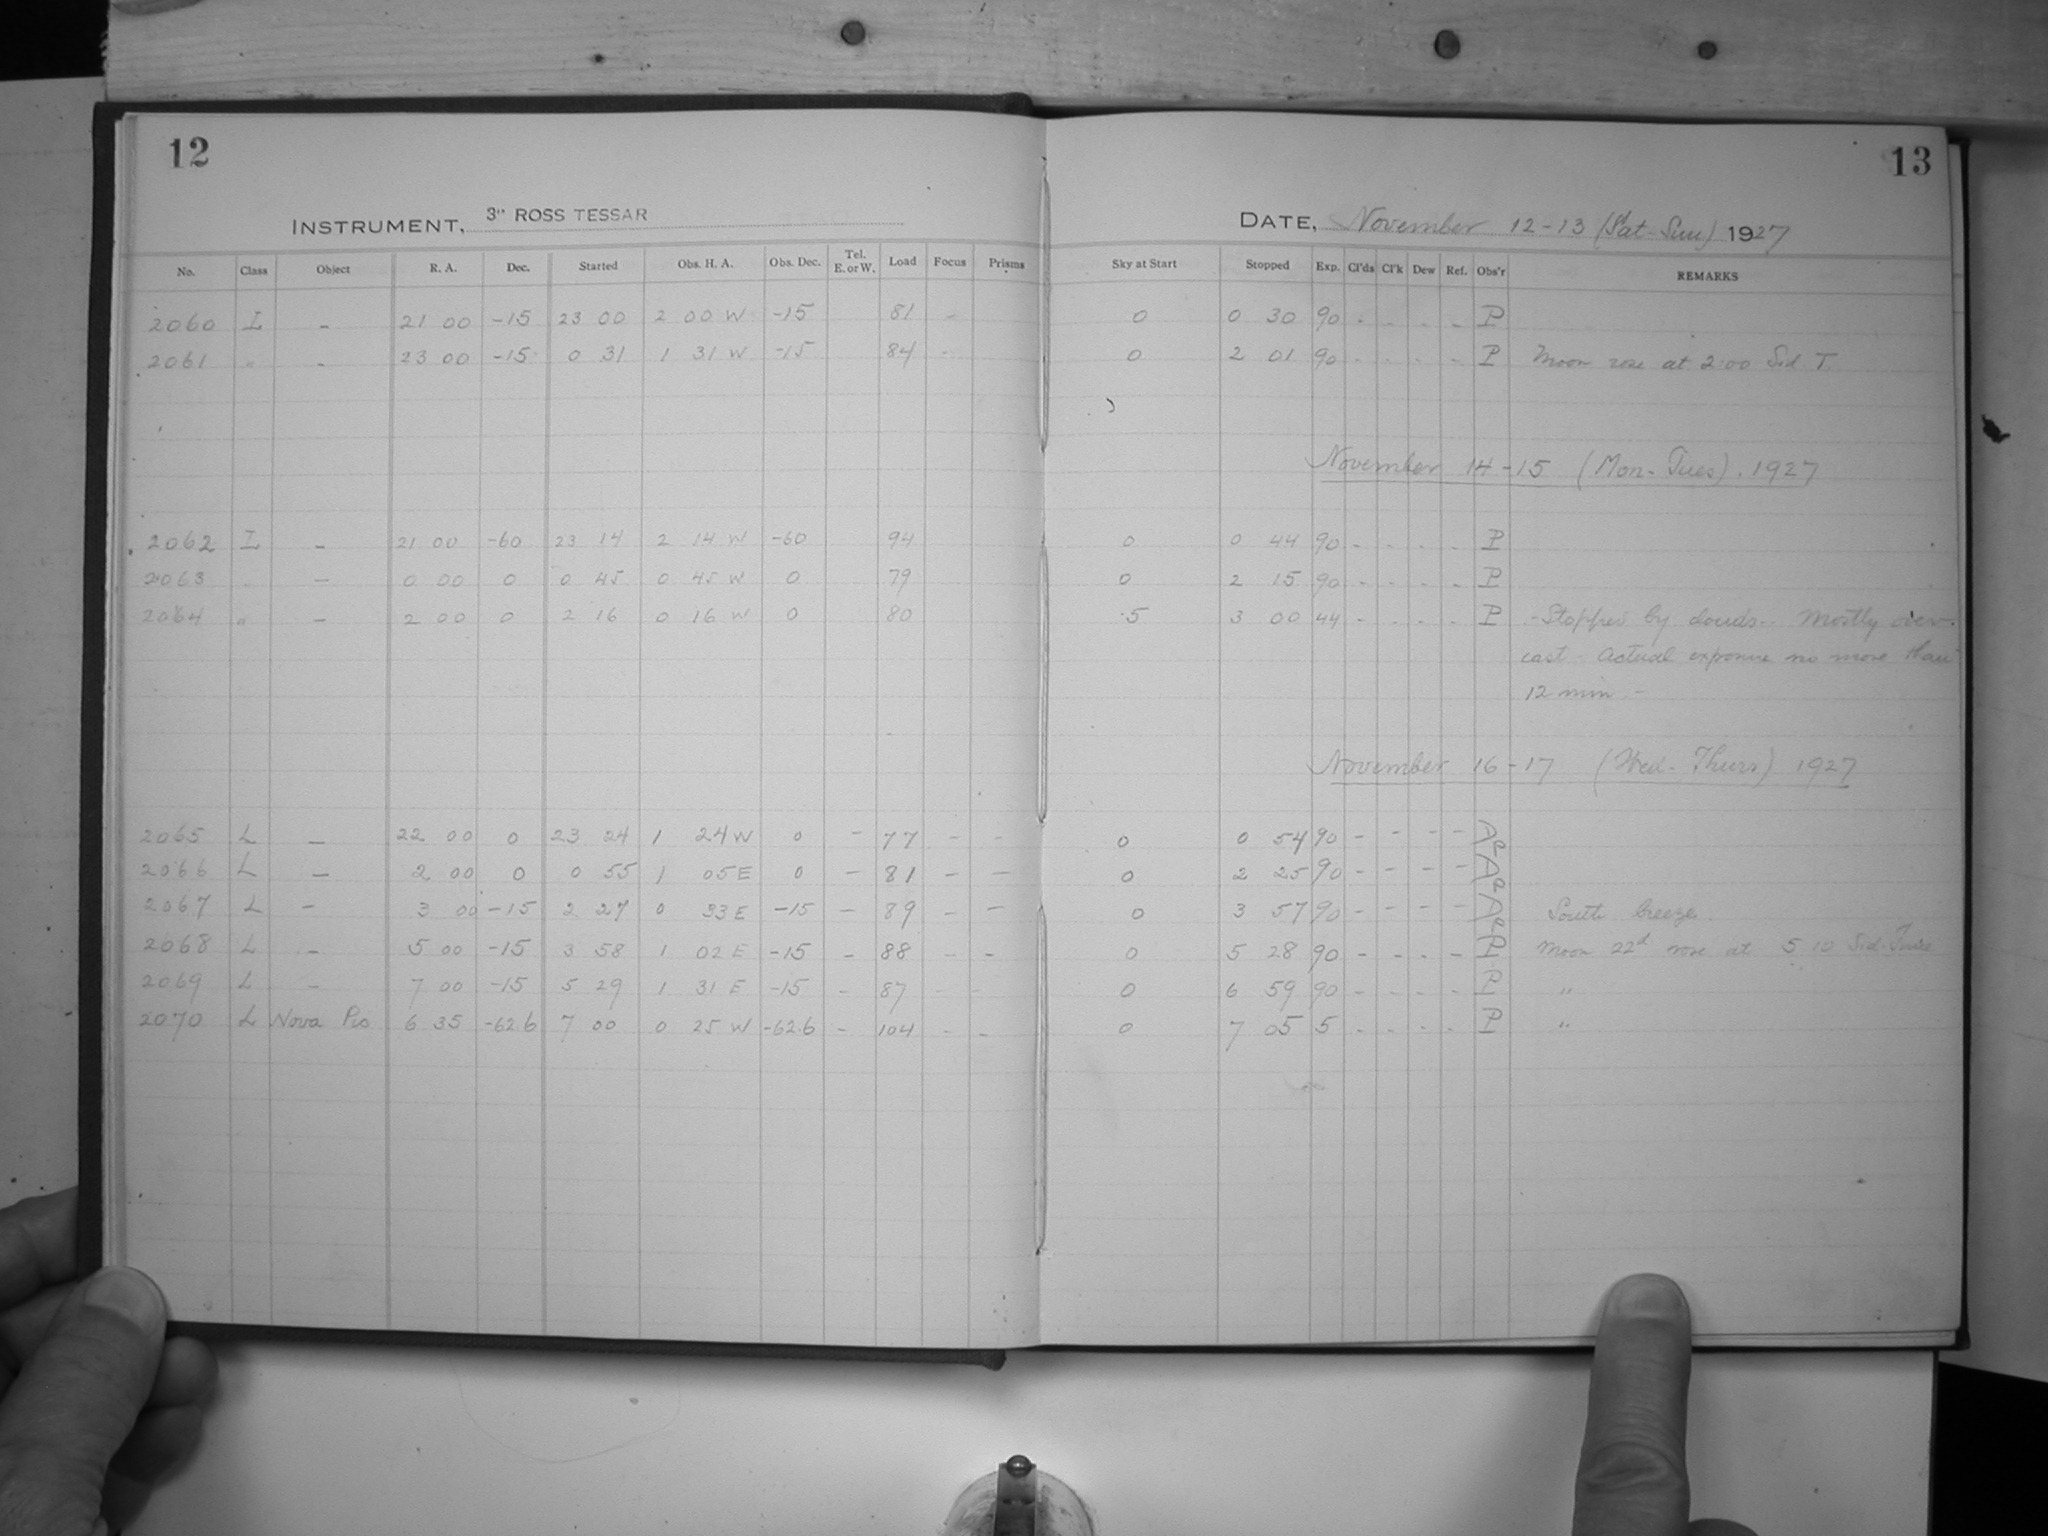 12
13
INSTRUMENT, 3" ROSS TESSAR
DATE, November 12-13 (Sat-Sun) 1927
No. Class Object R. A. Dec. Started Obs. H. A. Obs. Dec. Tel. E. or W. Load Focus Prisms Sky at Start Stopped Exp. Cl'ds Cl'k Dew Ref. Obs'r REMARKS
2060 L - 21 00 -15 23 00 2 00 W -15 81 - 0 0 30 90 - - - - P
2061 " - 23 00 -15 0 31 1 31 W -15 84 - 0 2 01 90 - - - - P Moon rose at 2:00 Sid. T.
November 14-15 (Mon-Tues). 1927
2062 L - 21 00 -60 23 14 2 14 W -60 94 0 0 44 90 - - - - P
2063 - 0 00 0 0 45 0 45 W 0 79 0 2 15 90 - - - - P
2064 " - 2 00 0 2 16 0 16 W 0 80 5 3 00 44 - - - - P - Stopped by clouds - Mostly over-
cast - Actual exposure no more than
12 min -
November 16-17 (Wed-Thurs) 1927
2065 L - 22 00 0 23 24 1 24 W 0 - 77 - - 0 0 54 90 - - - -
2066 L - 2 00 0 0 55 1 05 E 0 - 81 - - 0 2 25 90 - - - -
2067 L - 3 00 -15 2 27 0 33 E -15 - 89 - - 0 3 57 90 - - - - South breeze
2068 L - 5 00 -15 3 58 1 02 E -15 - 88 - - 0 5 28 90 - - - - P Moon 22d rose at 5 10 Sid. Time
2069 L - 7 00 -15 5 29 1 31 E -15 - 87 - - 0 6 59 90 - - - - P "
2070 L Nova Pic 6 35 -62.6 7 00 0 25 W -62.6 - 104 - - 0 7 05 5 - - - - P "